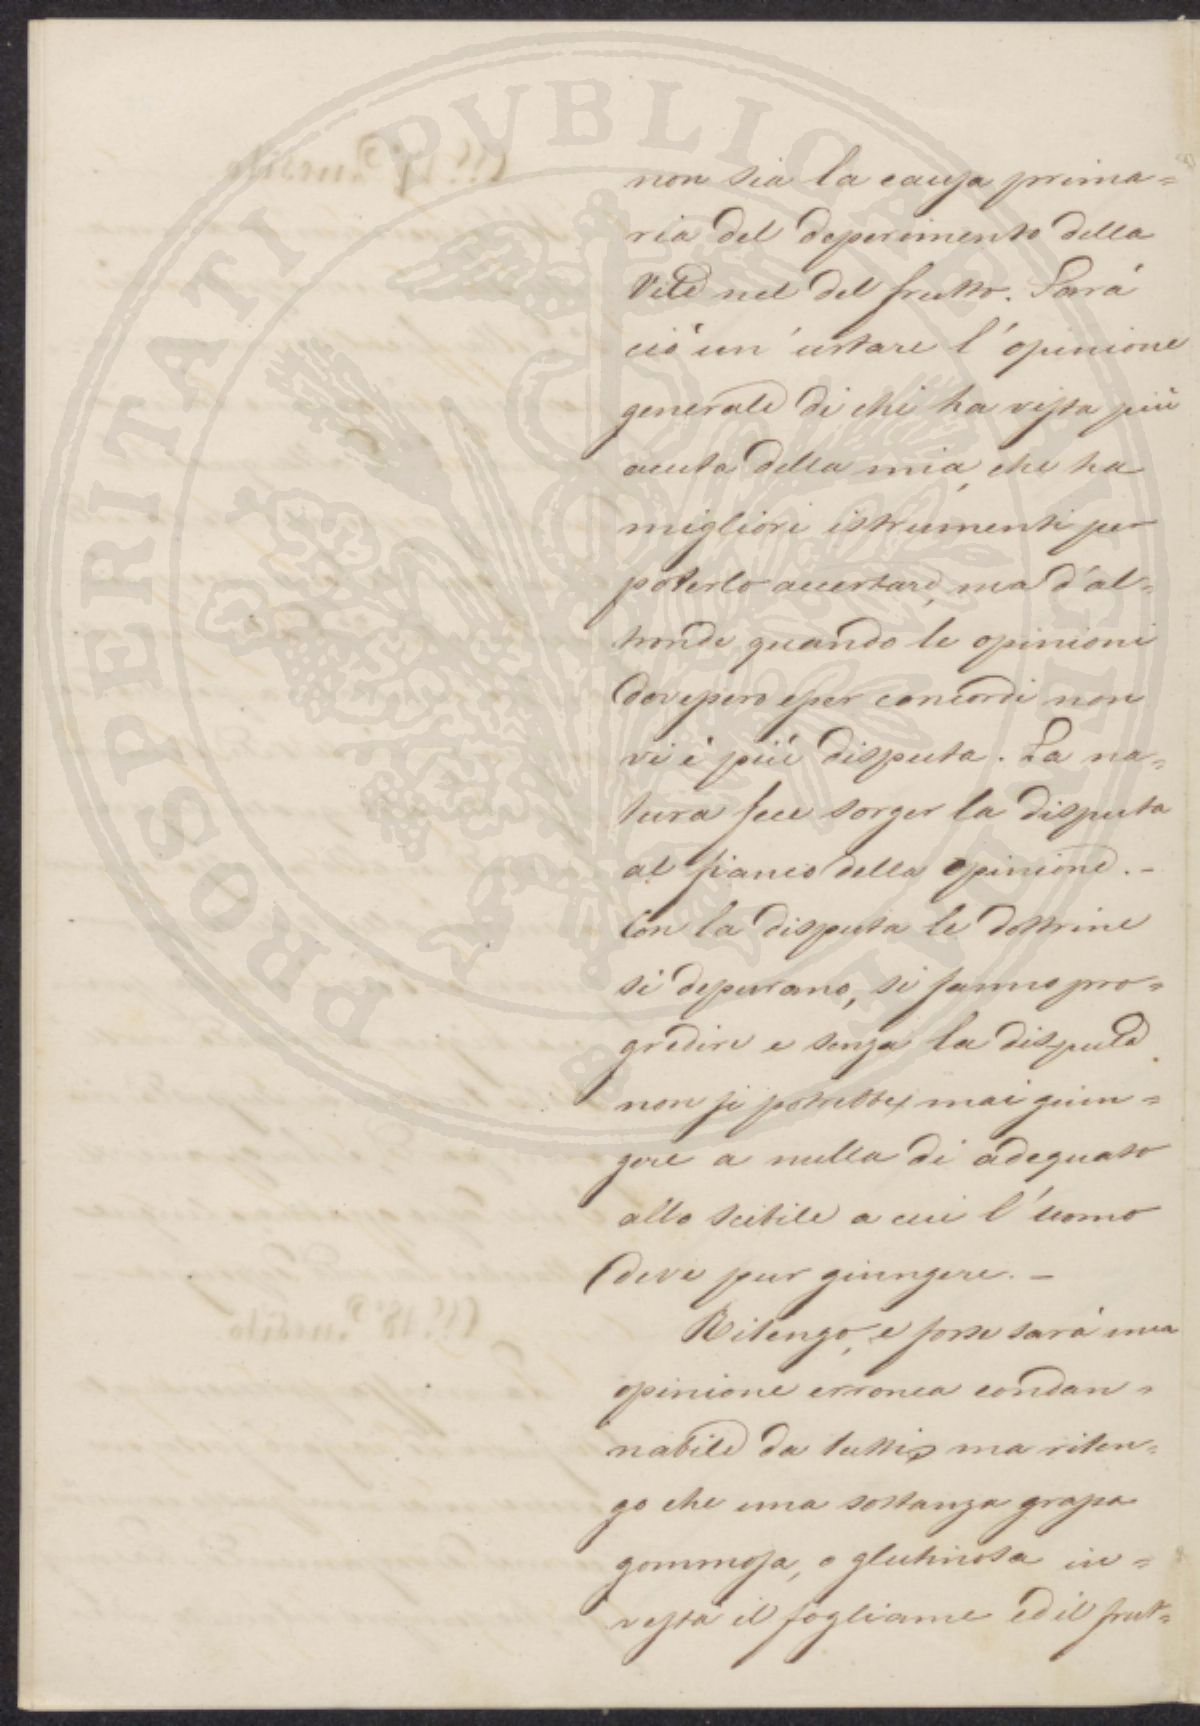 PROSPERITATI PVBLICAE AVGENDAE
non sia la causa prima=
ria del deperimento della
Vite nel del frutto. Sarà
ciò un'urtare l'opinione
generale di chi ha vista più
acuta della mia, che ha
migliori istrumenti per
poterlo accertare, ma d'al=
tronde quando le opinioni
dovessero esser concordi non
vi è più disputa. La na=
tura fece sorger la disputa
al fianco della opinione. -
Con la disputa le dottrine
si depurano, si fanno pro=
gredire e senza la disputa
non si potrebbe mai giun=
gere a nulla di adeguato
allo scibile a cui l'uomo
deve pur giungere. -
Ritengo, e forse sarà una
opinione erronea condan=
nabile da tutti, ma riten=
go che una sostanza grassa
gommosa, o glutinosa in=
vesta il fogliame ed il frut=